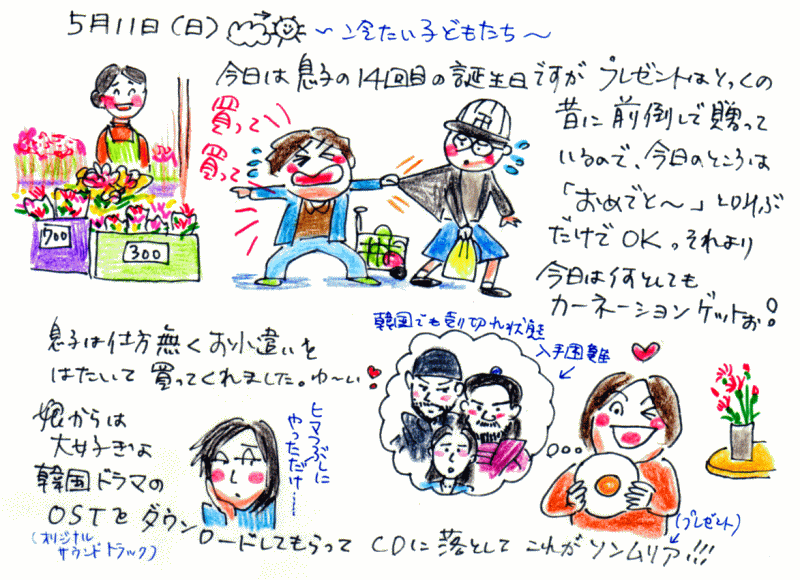 5月11日(日) ~冷たい子どもたち~
今日は息子の14回目の誕生日ですが プレゼントはとっくの
昔に前倒しで贈って
いるので、今日のところは
「おめでと~」と叫ぶ
だけでOKっ それより
今日は何としても
カーネーションゲットぉ!
買って
買って
700
300
息子は仕方無くお小遣いを
はたいて買ってくれました。ゆ~い
韓国でも売り切れ状態
入手困難
娘からは
大好きな
韓国ドラマの
OSTをダウンロードしてもらって CDに落として これがソンムリア!!!
(オリジナル
サウンドトラック)
ヒマつぶしに
やっただけ……
(プレゼント)